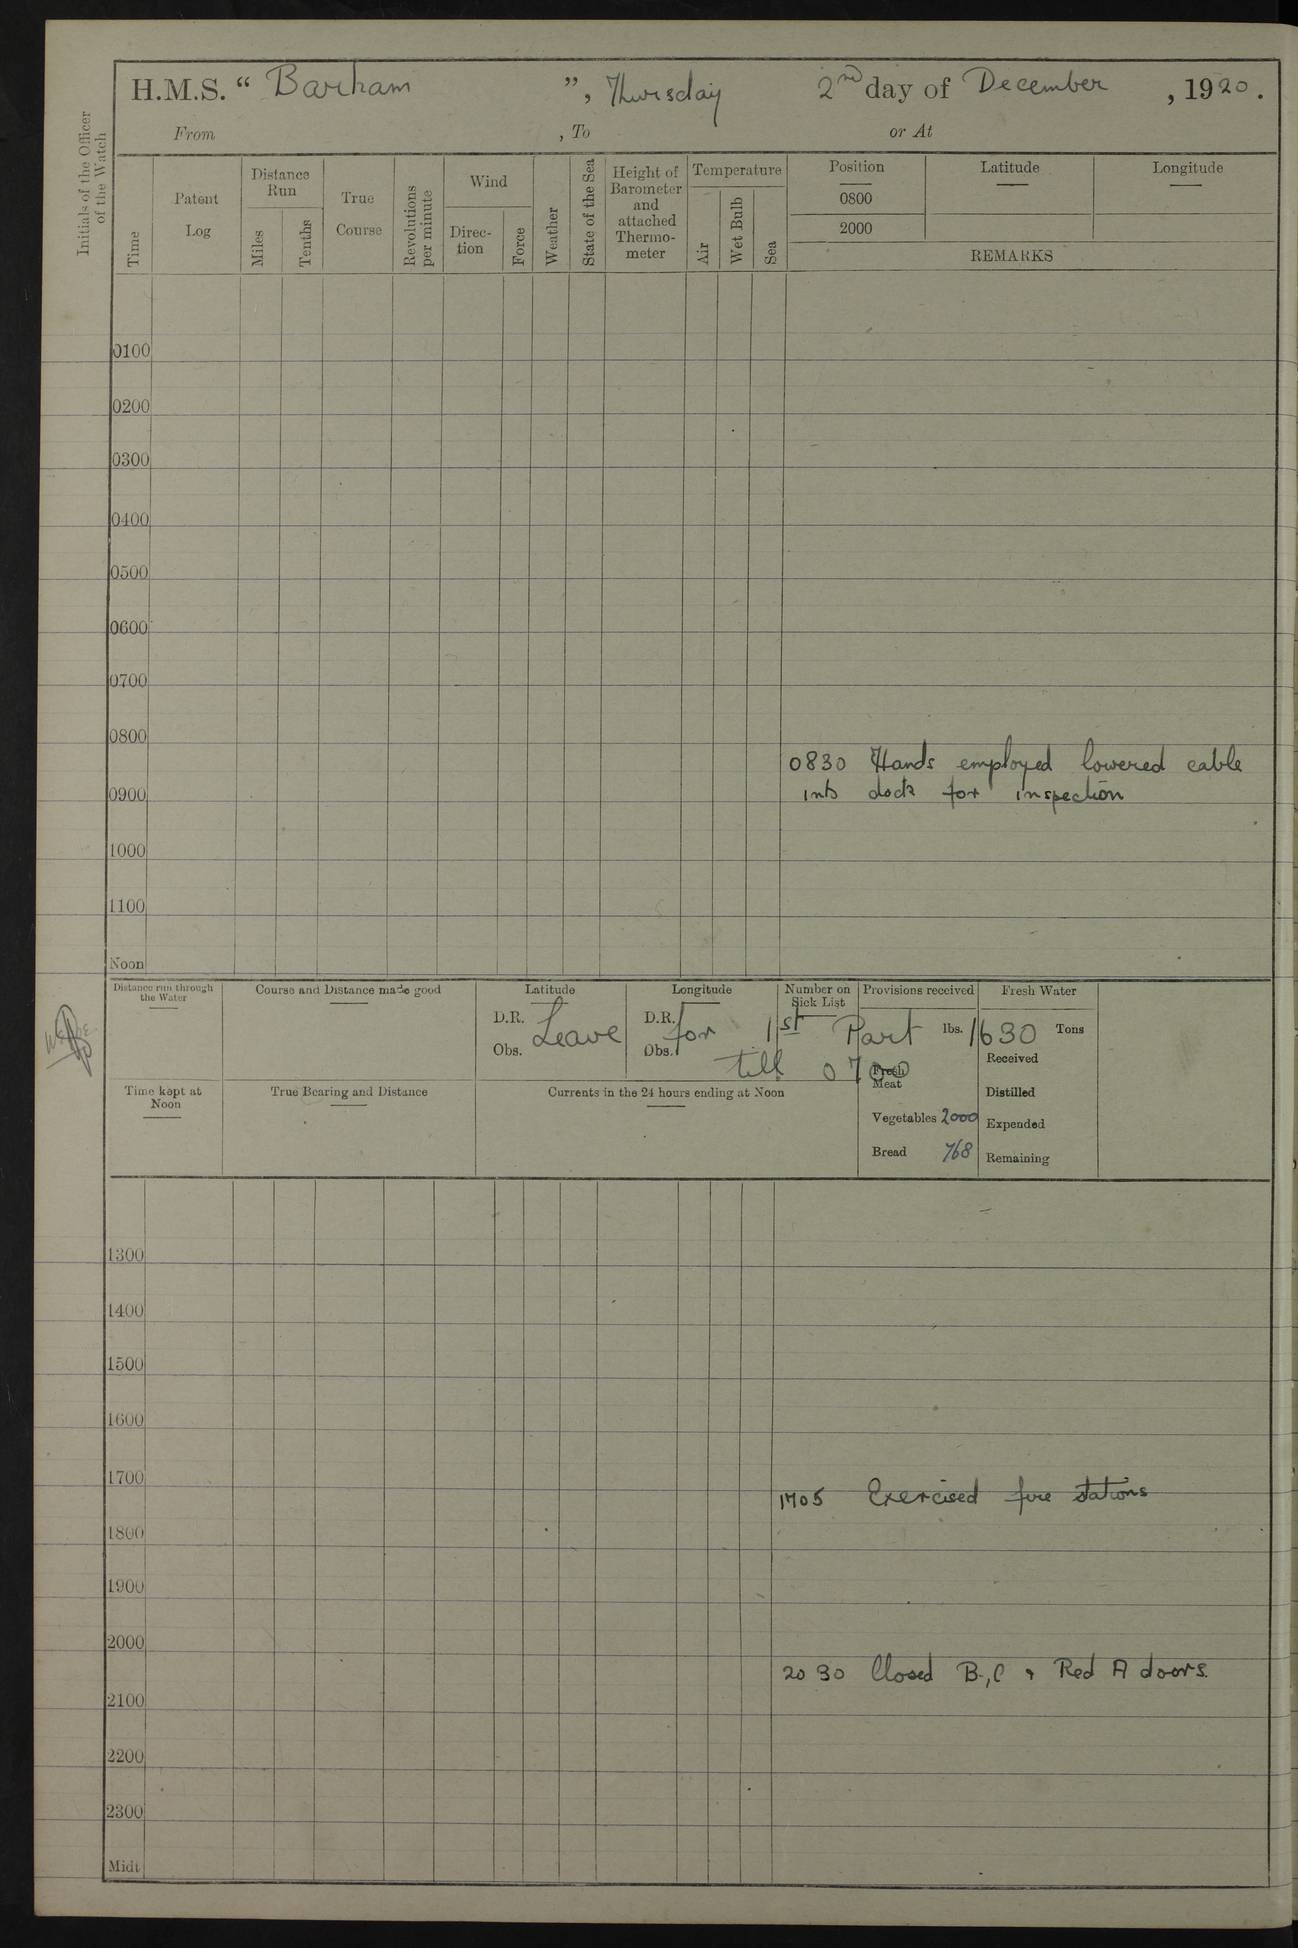 H.M.S. “ Barham ”, Thursday 2nd day of December, 1920.
From , To or At
Initials of the Officer
of the Watch
Time
Patent
Log
Distance
Run
Miles
Tenths
True
Course
Revolutions
per minute
Wind
Direc-
tion
Force
Weather
State of the Sea
Height of
Barometer
and
attached
Thermo-
meter
Temperature
Air
Wet Bulb
Sea
Position Latitude Longitude
0800
2000
REMARKS
0100
0200
0300
0400
0500
0600
0700
0800
0830 Hands employed lowered cable
0900 into dock for inspection
1000
1100
Noon
Distance run through
the Water
Course and Distance made good
Latitude
D.R.
Obs.
Longitude
D.R.
Obs.
Number on
Sick List
Provisions received
lbs.
Fresh Water
Tons
Leave for 1st Part 1630
till 0700
Received
Fresh
Meat
Distilled
Time kept at
Noon
True Bearing and Distance
Currents in the 24 hours ending at Noon
Vegetables 2000
Expended
Bread 768
Remaining
1300
1400
1500
1600
1700
1705 Exercised fire stations
1800
1900
2000
2030 Closed B, C & Red A doors.
2100
2200
2300
Midt